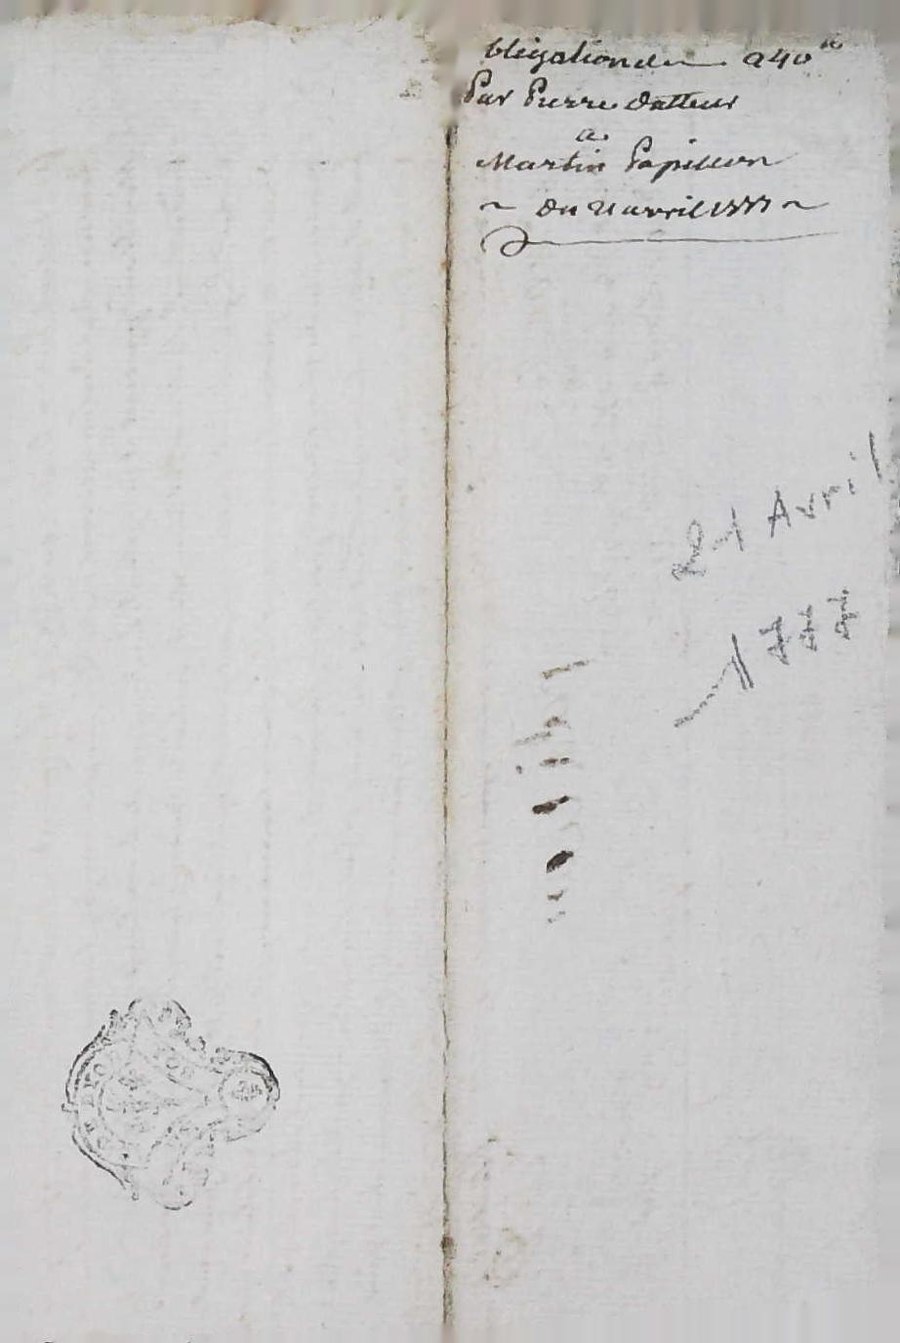 bligation de 240ᵗᵗ
Par Pierre datteur
a
Martin Papillon
~ du 21 avril 1777 ~
21 Avril
1777